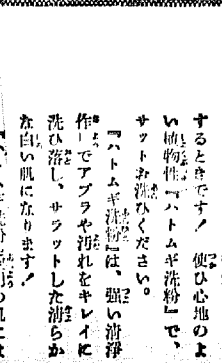 するときです！ 使ひ心地のよ
い植物性『ハトムギ洗粉』で、
サットお洗ひください。
『ハトムギ洗粉』は、強い清浄
作用でアブラや汚れをキレイに
洗ひ落し、サラットした清らか
な白い肌になります！